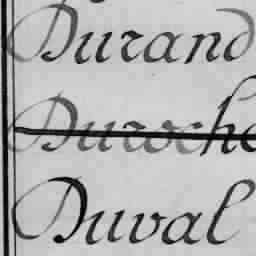 Durand
Duroche
Duval